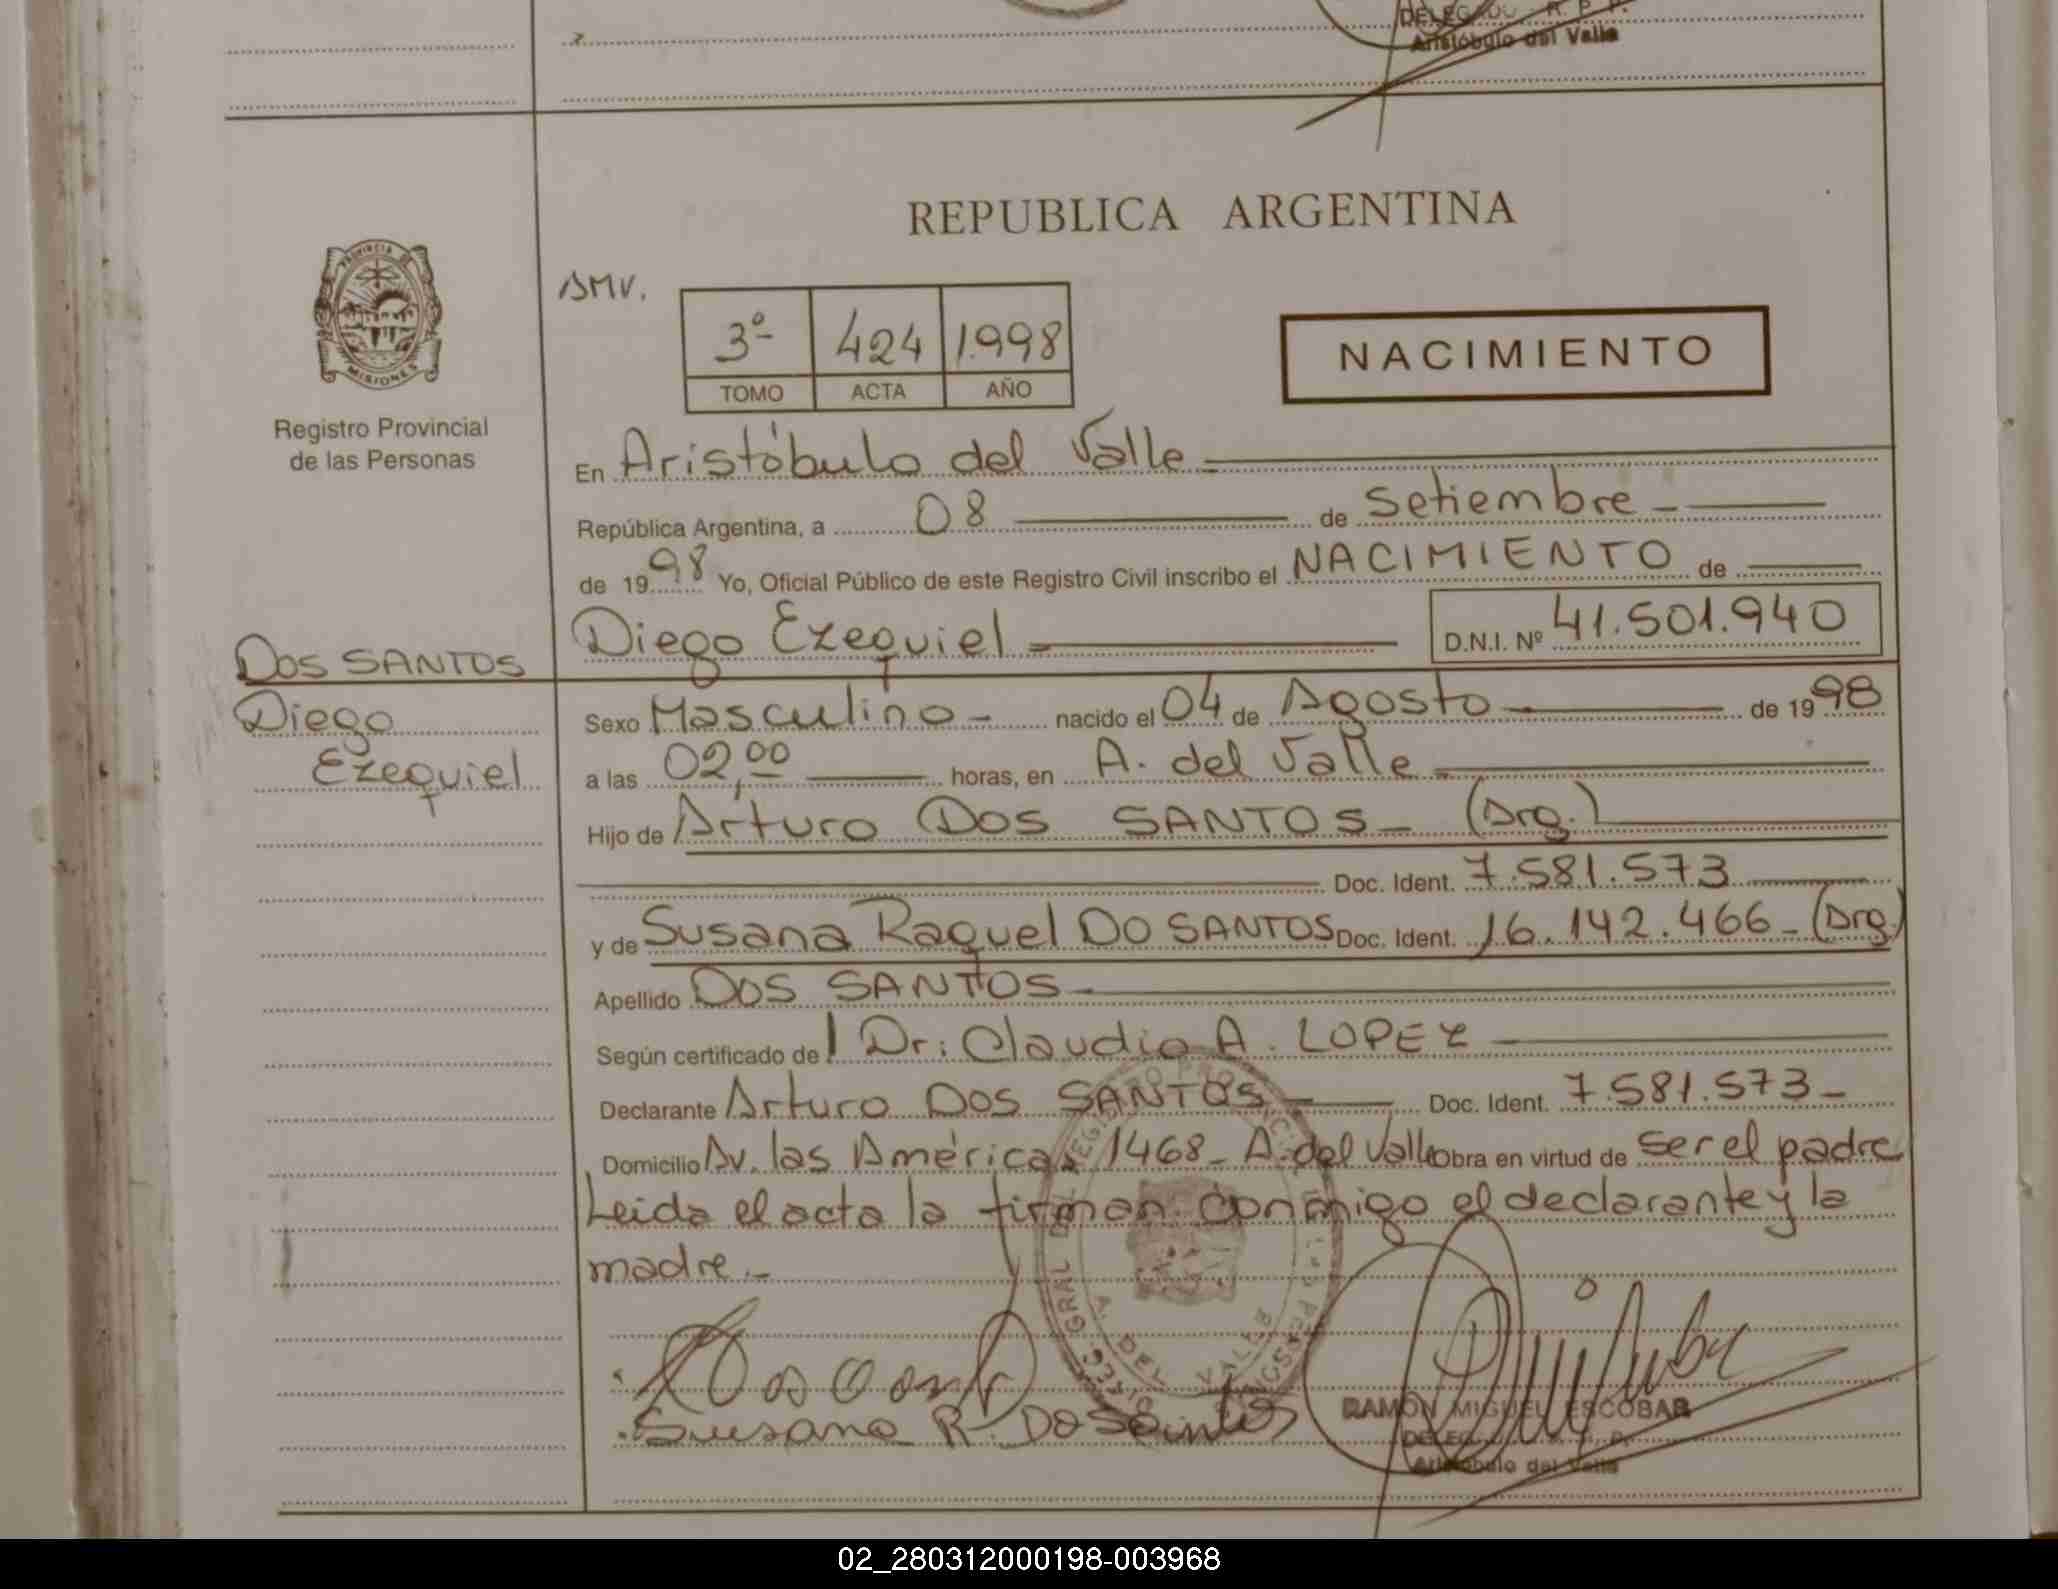 DELEGADO R. P. P.
Aristóbulo del Valle
REPUBLICA ARGENTINA
PROVINCIA DE
MISIONES
Registro Provincial
de las Personas
AMV.
3º 424 1.998
TOMO ACTA AÑO
NACIMIENTO
En Aristóbulo del Valle
República Argentina, a 08 de Setiembre
de 1998 Yo, Oficial Público de este Registro Civil inscribo el NACIMIENTO de
Diego Ezequiel D.N.I. Nº 41.501.940
DOS SANTOS
Diego
Ezequiel
Sexo Masculino nacido el 04 de Agosto de 1998
a las 02,00 horas, en A. del Valle
Hijo de Arturo DOS SANTOS (Arg.)
Doc. Ident. 7.581.573
y de Susana Raquel DO SANTOS Doc. Ident. 16.142.466 (Arg.)
Apellido DOS SANTOS
Según certificado del Dr: Claudio A. LOPEZ
Declarante Arturo DOS SANTOS Doc. Ident. 7.581.573
Domicilio Av. las Américas 1468 A. del Valle obra en virtud de ser el padre
Leida el acta la firman conmigo el declarante y la
madre.
A. DEL VALLE
Susana R. Do Santos
RAMÓN MIGUEL ESCOBAR
Aristóbulo del Valle
02_280312000198-003968